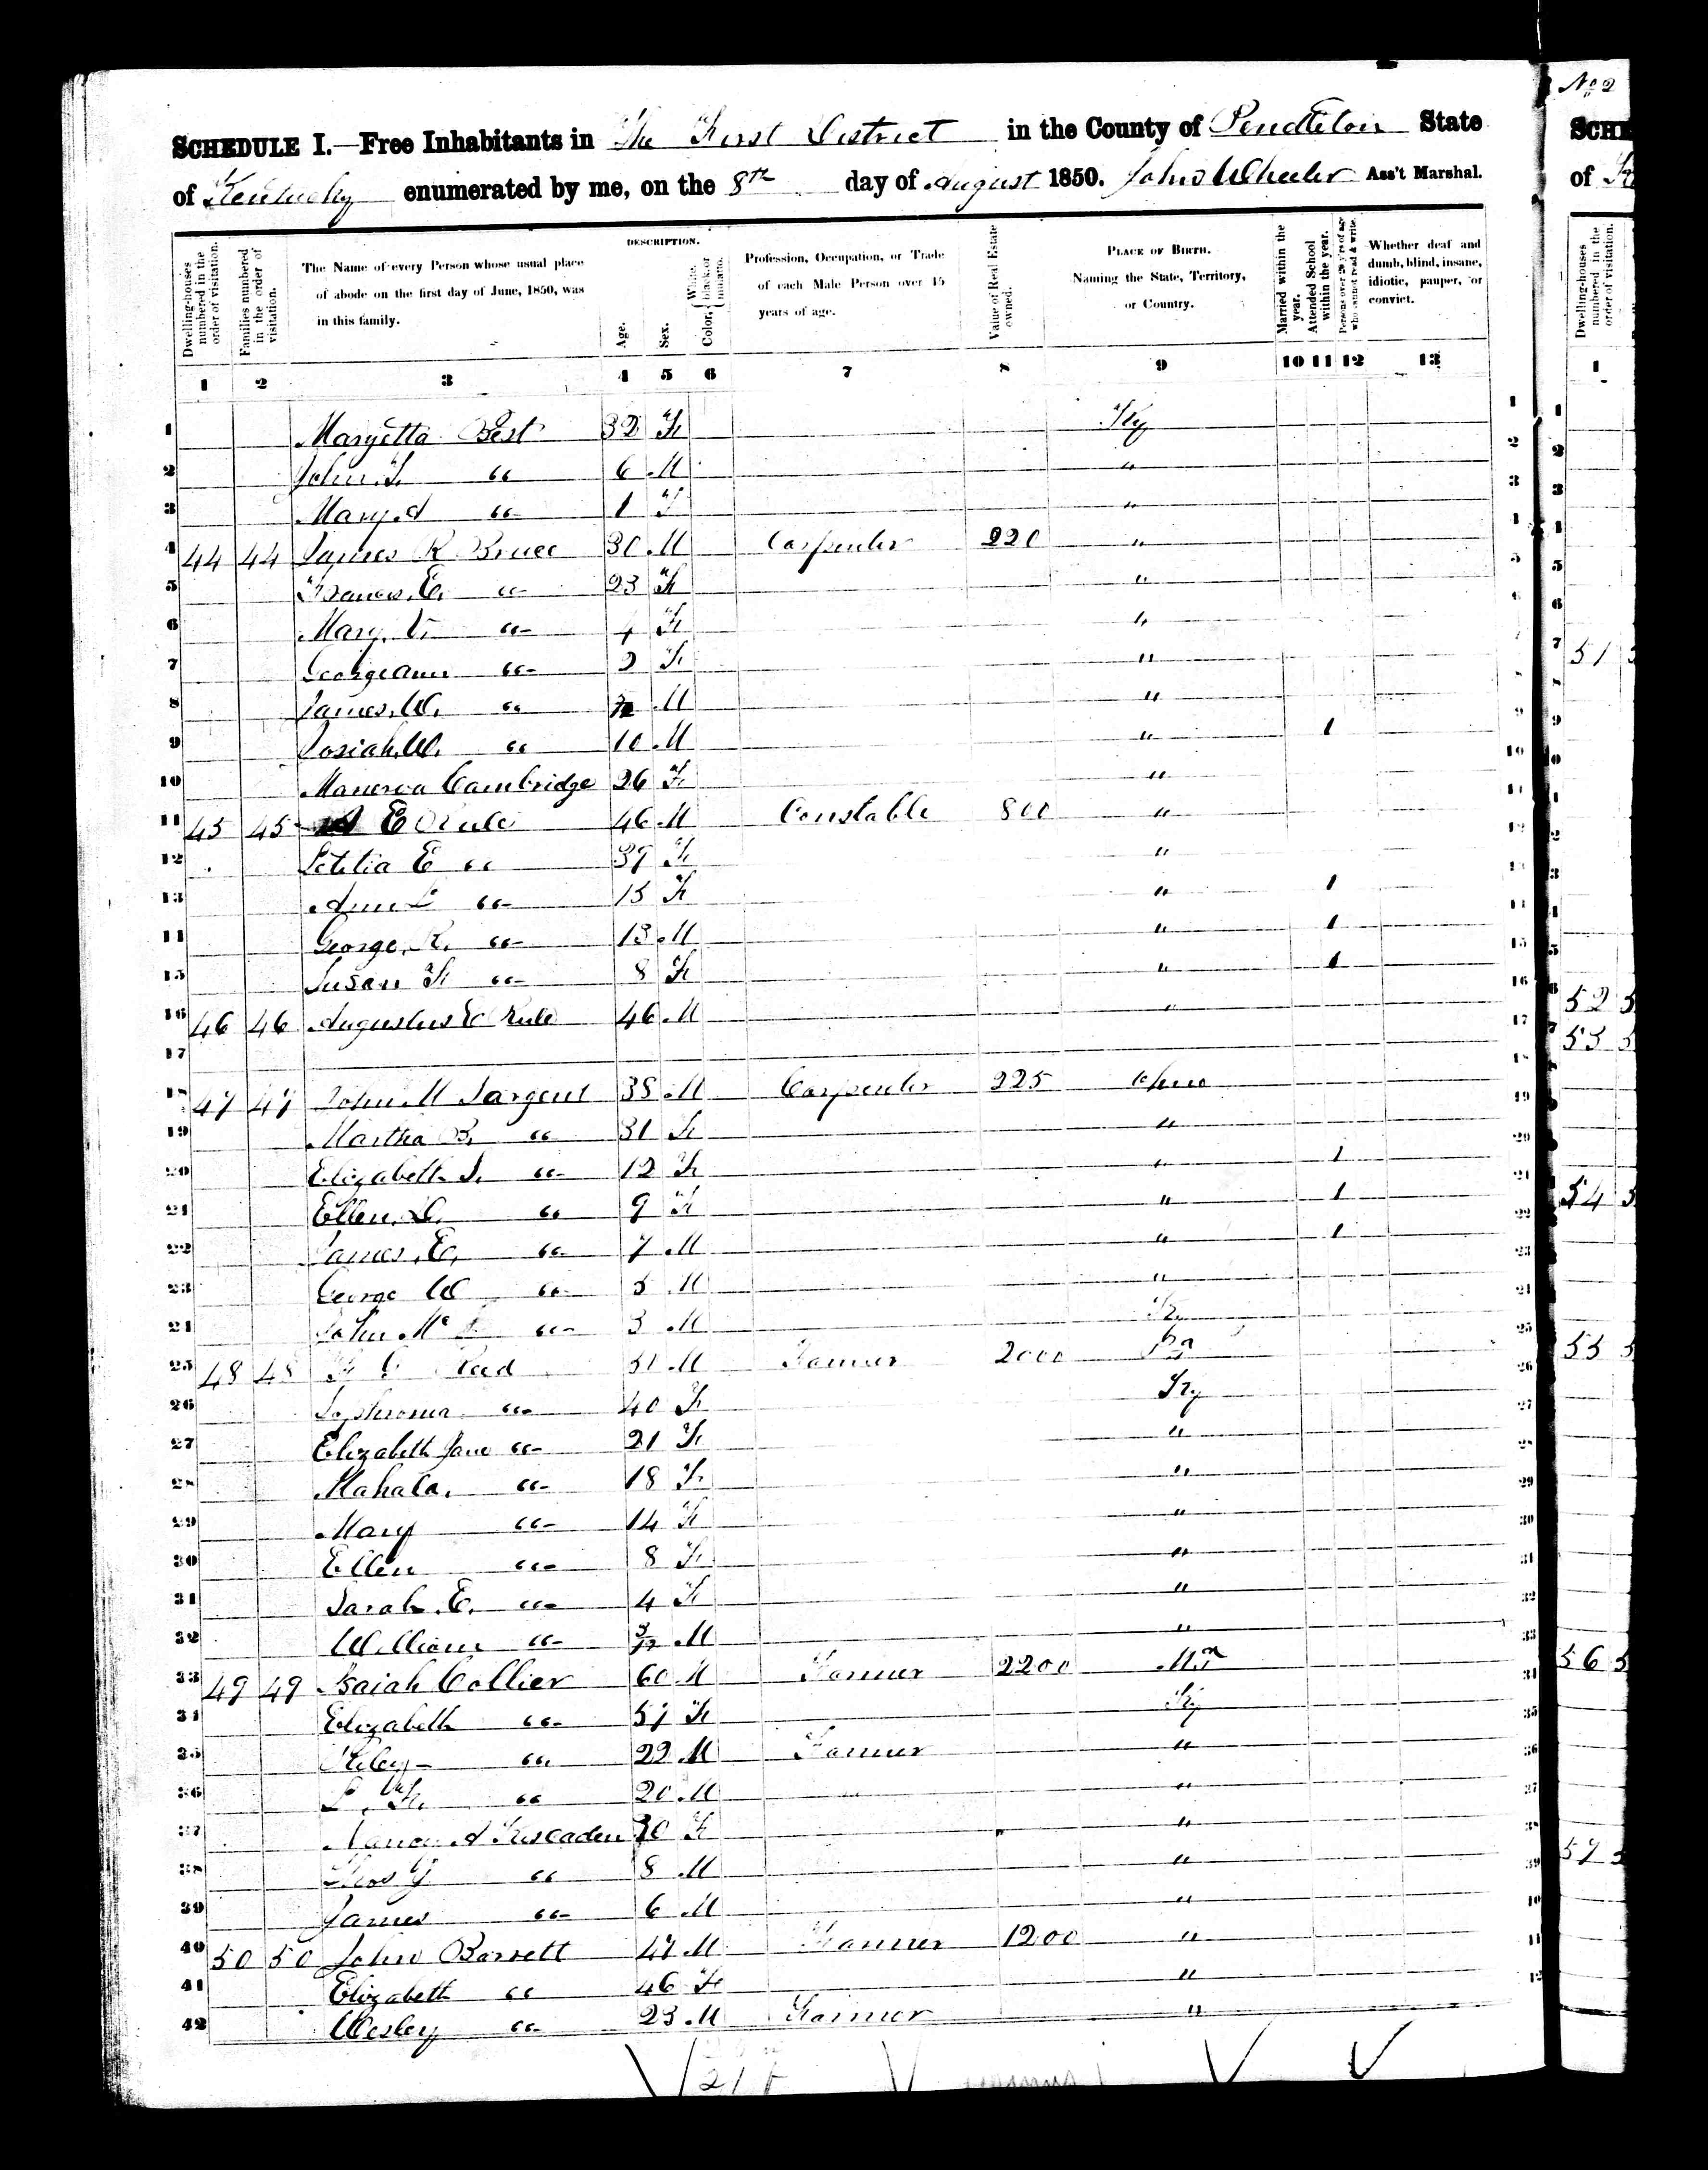 No 2
SCHEDULE I.—Free Inhabitants in The First District in the County of Pendleton State
of Kentucky enumerated by me, on the 8th day of August 1850. John Wheeler Ass't Marshal.
Dwelling-houses numbered in the order of visitation.
Families numbered in the order of visitation.
The Name of every Person whose usual place of abode on the first day of June, 1850, was in this family.
DESCRIPTION.
Age.
Sex.
Color, { White, black, or mulatto.
Profession, Occupation, or Trade of each Male Person over 15 years of age.
Value of Real Estate owned.
PLACE OF BIRTH. Naming the State, Territory, or Country.
Married within the year.
Attended School within the year.
Persons over 20 y'rs of age who cannot read & write.
Whether deaf and dumb, blind, insane, idiotic, pauper, or convict.
1 2 3 4 5 6 7 8 9 10 11 12 13
1 Maryetta Best 32 F Ky
2 John F. " 6 M "
3 Mary A " 1 F "
4 44 44 James R Bruce 30 M Carpenter 220 "
5 Frances E. " 23 F "
6 Mary V. " 4 F "
7 Georgeann " 2 F "
8 James W. " M "
9 Josiah W. " 10 M " 1
10 Manerva Cambridge 26 F "
11 45 45 E Rule 46 M Constable 800 "
12 Letitia E " 39 F "
13 Ann L " 15 F " 1
14 George R. " 13 M " 1
15 Susan F " 8 F " 1
16 46 46 Augustus E Rule 46 M "
17
18 47 47 John M Sargent 38 M Carpenter 225 Ohio
19 Martha B. " 31 F "
20 Elizabeth J. " 12 F " 1
21 Ellen D. " 9 F " 1
22 James E. " 7 M " 1
23 George W " 5 M "
24 John Mc " 3 M Ky
25 48 48 Reed 51 M Farmer 2000 Pa
26 Sophronia " 40 F Ky
27 Elizabeth Jane " 21 F "
28 Mahala " 18 F "
29 Mary " 14 F "
30 Ellen " 8 F "
31 Sarah E. " 4 F "
32 William " 3/12 M "
33 49 49 Isaiah Collier 60 M Farmer 2200
34 Elizabeth " 57 F Ky
35 " 22 M Farmer "
36 " 20 M "
37 Nancy A Kiscaden 30 F "
38 Thos G " 8 M "
39 James " 6 M "
40 50 50 John Barrett 47 M Farmer 1200 "
41 Elizabeth " 46 F "
42 Wesley " 23 M Farmer "
SCHE
of
Dwelling-houses numbered in the order of visitation.
1
51
52
53
54
55
56
57